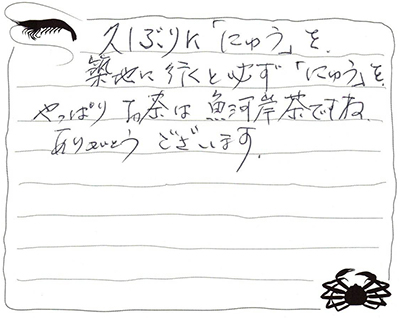 久しぶりに「にゅう」を.
築地に行くと必ず「にゅう」を.
やっぱりお茶は魚河岸茶ですね.
ありがとうございます.